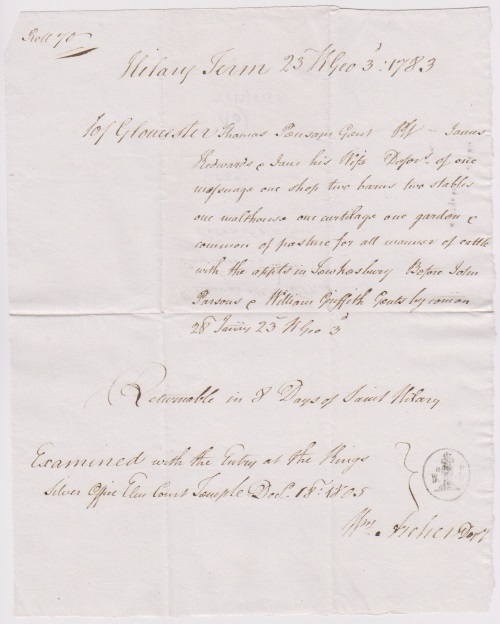 Roll 70
Hilary Term 23d K Geo 3d: 1783
Gloucester Thomas Parsam Gent Plt James
Edwards & Jane his Wife Defors of one
messuage one shop two barns two stables
one malthouse one curtilage one garden &
common of pasture for all manner of cattle
with the appts in Tewkesbury Before John
Parsons & William Griffith Gents by comon
28 Jany 23d K Geo 3d
Returnable in 8 Days of Saint Hilary
Examined with the Entry at the Kings
Silver Office Elm Court Temple Decr. 18th 1805
Wm. Archer Depy